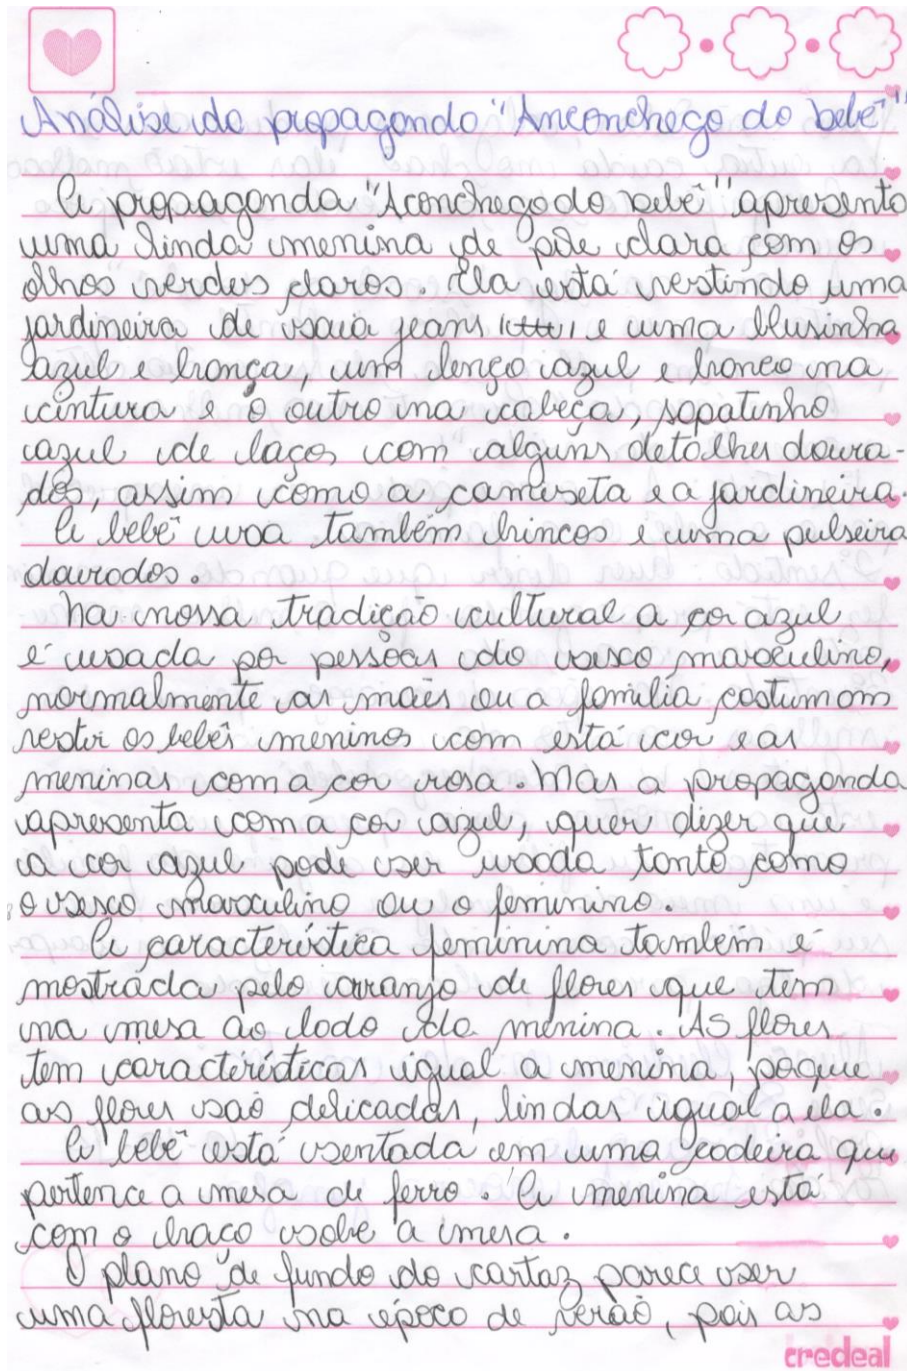 Análise da propaganda "Anconchego do bebê"
A propaganda "Aconchego do bebê" apresenta
uma linda menina de pele clara com os
olhos verdes claros. Ela está vestindo uma
jardineira de saia jeans e uma blusinha
azul e branca, um lenço azul e branco na
cintura e o outro na cabeça, sapatinho
azul de laços com alguns detalhes doura-
dos, assim como a camiseta e a jardineira.
A bebê usa também brincos e uma pulseira
dourados.
Na nossa tradição cultural a cor azul
é usada por pessoas do sexo masculino,
normalmente as mães ou a familia costumam
vestir os bebês meninos com está cor e as
meninas com a cor rosa. Mas a propaganda
apresenta com a cor azul, quer dizer que
a cor azul pode ser usada tanto como
o sexo masculino ou o feminino.
A característica feminina também é
mostrada pelo arranjo de flores que tem
na mesa ao lado da menina. AS flores
tem características igual a menina, poque
as flores são delicadas, lindas igual a ela.
A bebê está sentada em uma cadeira que
pertence a mesa de ferro. A menina está
com o braço sobre a mesa.
O plano de fundo do cartaz parece ser
uma floresta na época de verão, pois as
credeal